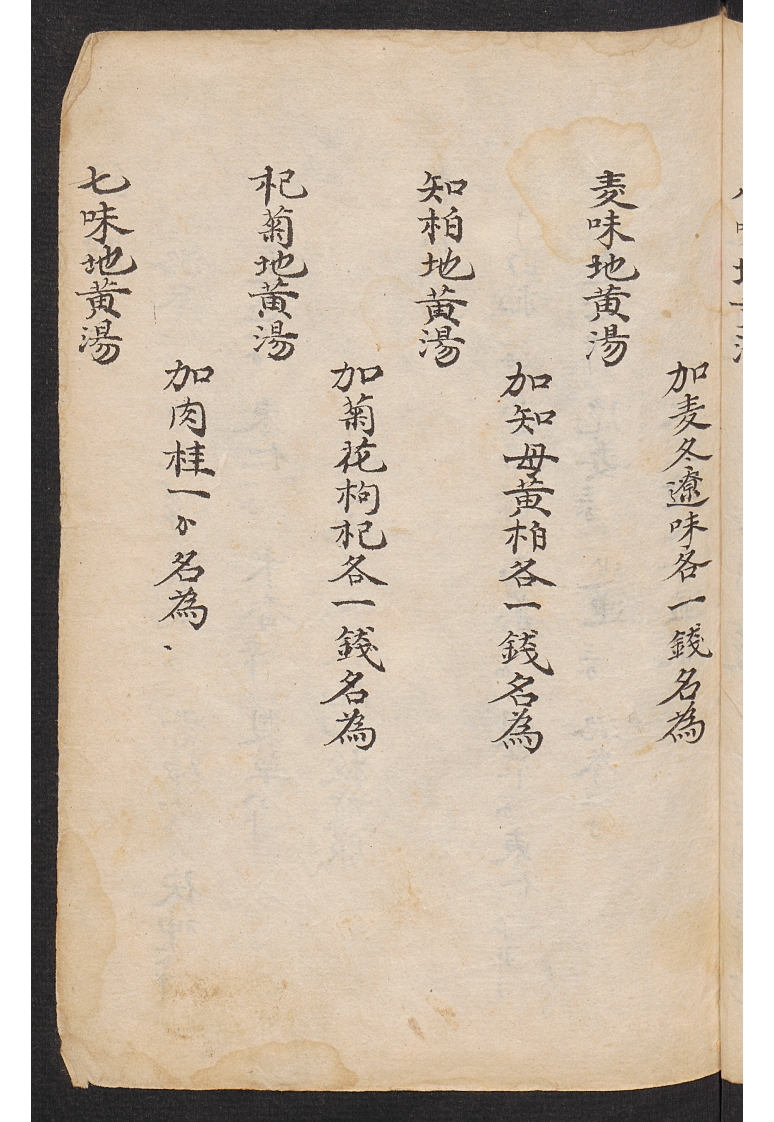 加麦冬遼味各一錢名為
麦味地黄湯
加知母黄柏各一錢名為
知柏地黄湯
加菊花枸杞各一錢名為
杞菊地黄湯
加肉桂一个名為
七味地黄湯